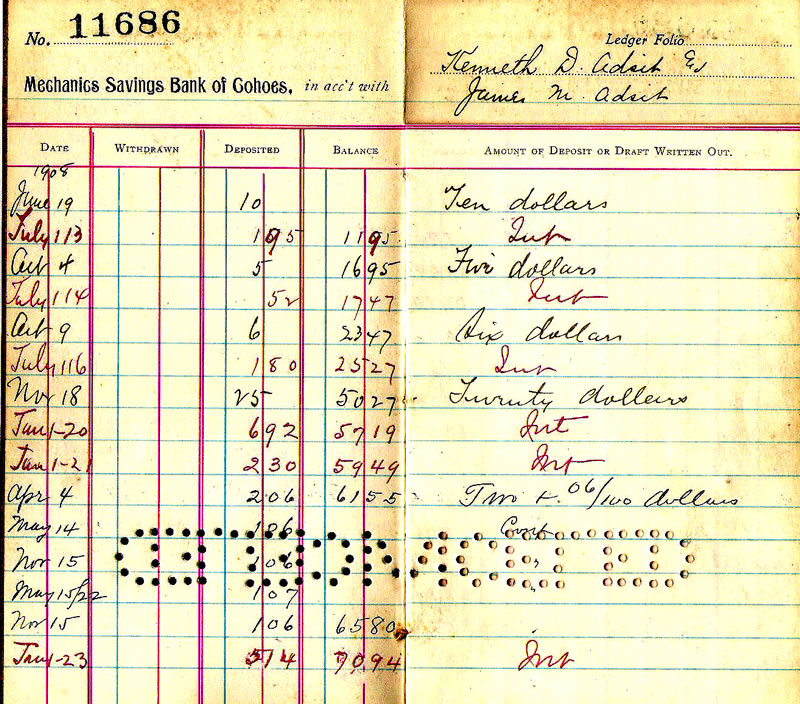 No. 11686
Ledger Folio
Kenneth D. Adsit
Mechanics Savings Bank of Cohoes, in acc't with
James M. Adsit
DATE WITHDRAWN DEPOSITED BALANCE AMOUNT OF DEPOSIT OR DRAFT WRITTEN OUT.
1908
June 19 10 Ten dollars
July 1 13 1 95 11 95 Int
Oct 4 5 16 95 Five dollars
July 1 14 52 17 47 Int
Oct 9 6 23 47 Six dollars
July 1 16 1 80 25 27 Int
Nov 18 25 50 27 Twenty dollars
Jan 1-20 6 92 57 19 Int
Jan 1-21 2 30 59 49 Int
Apr 4 2 06 61 55 Two + 06/100 dollars
May 14 1 06 Coup
Nov 15 1 06 "
May 15/22 1 07 "
Nov 15 1 06 65 80
Jan 1-23 5 14 70 94 Int